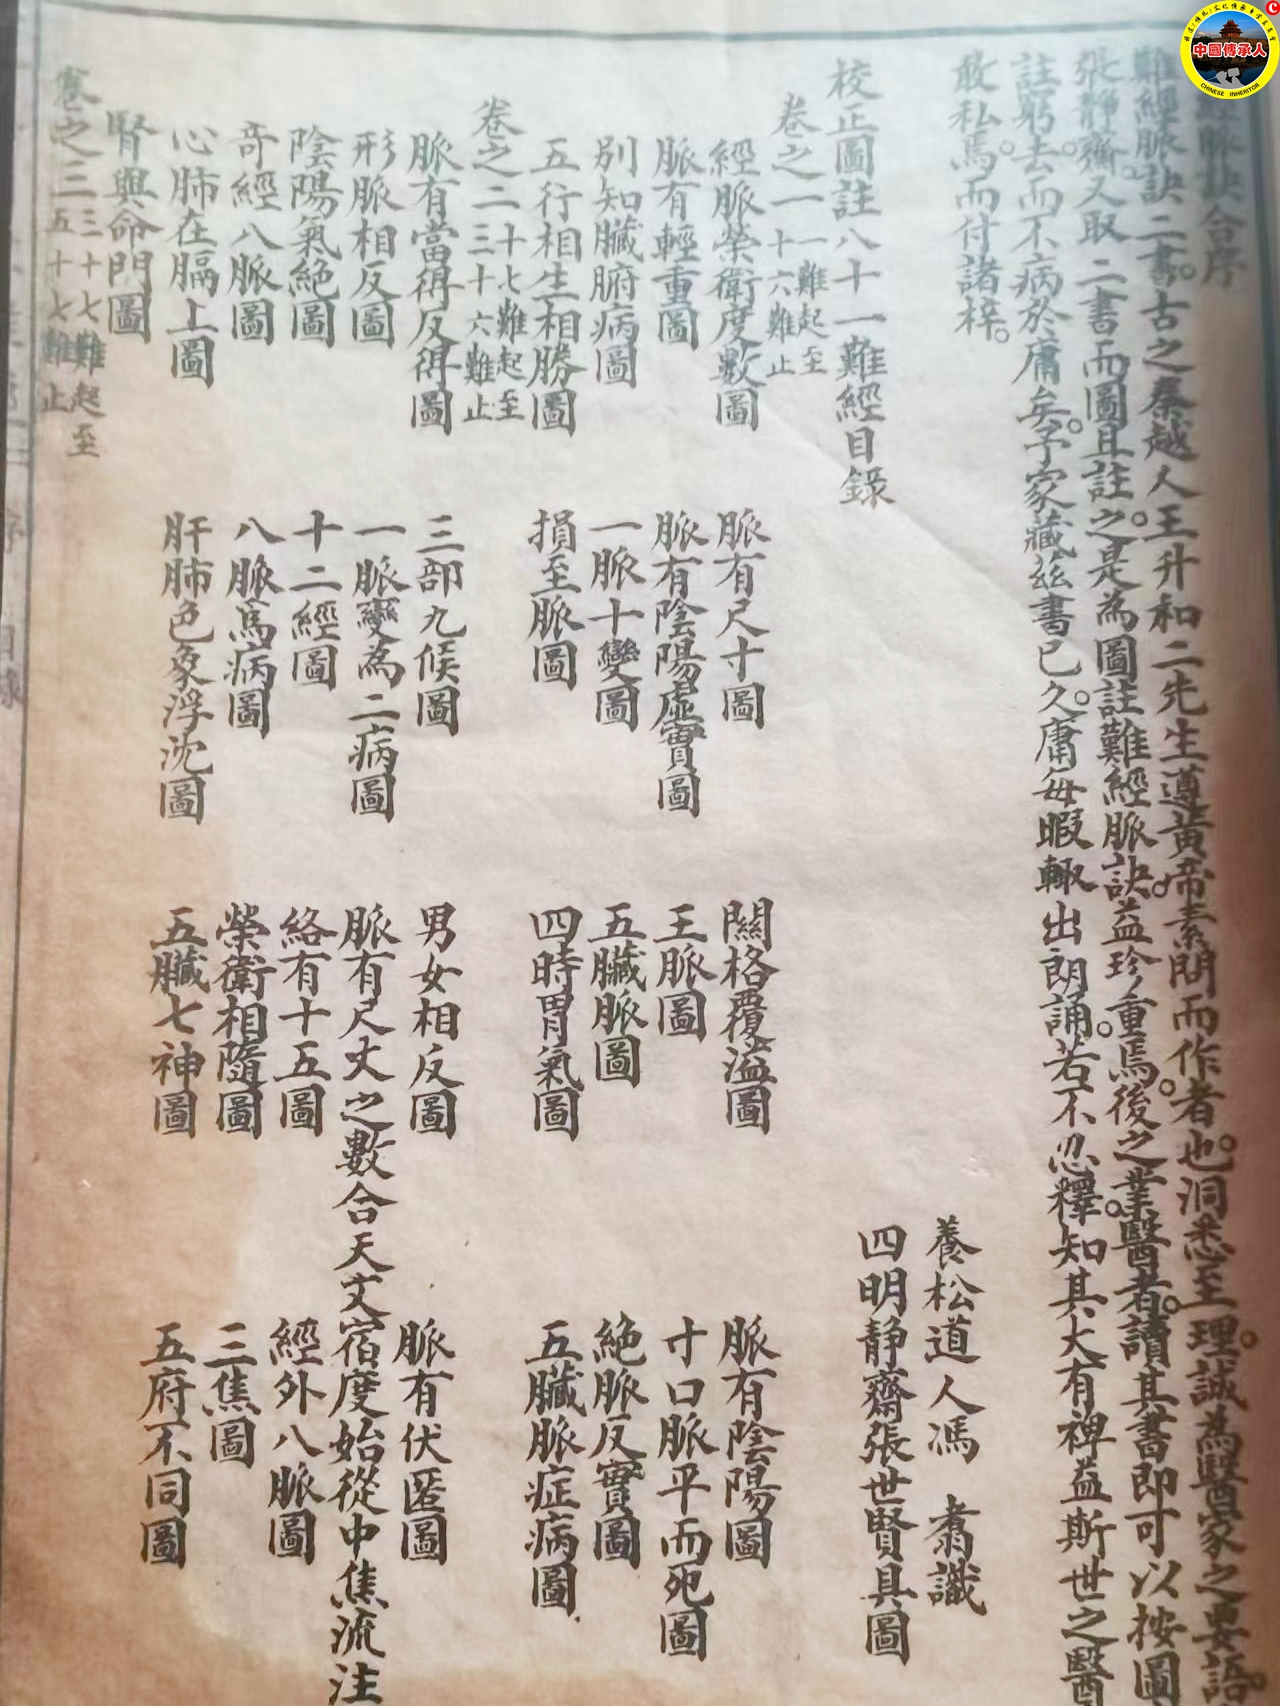 經脉訣合序
難經脈訣二書古之秦越人王升和二先生遵黃帝素問而作者也洞悉至理誠爲醫家之要語
張靜齋又取二書而圖且註之是為圖註難經脈訣益珍重焉後之業醫者讀其書即可以按圖
註窮去而不病於庸矣予家藏茲書已久庸每暇輙出朗誦若不忍釋知其大有裨益斯世之醫
敢私焉而付諸梓
養松道人馮 翥識
校正圖註八十一難經目錄
四明靜齋張世賢具圖
卷之一 一難起至十六難止
經脈榮衛度數圖 脈有尺寸圖 關格覆溢圖 脈有陰陽圖
脈有輕重圖 脈有陰陽虛實圖 王脈圖 寸口脈平而死圖
別知臟腑病圖 一脈十變圖 五臟脈圖 絕脈反實圖
五行相生相勝圖 損至脈圖 四時胃氣圖 五臟脈症病圖
卷之二 十七難起至三十六難止
脈有當得反得圖 三部九候圖 男女相反圖 脈有伏匿圖
形脈相反圖 一脈變為二病圖 脈有尺丈之數合天文宿度始從中焦流注
陰陽氣絕圖 十二經圖 絡有十五圖 經外八脈圖
奇經八脈圖 八脈爲病圖 榮衛相隨圖 三焦圖
心肺在膈上圖 肝肺色象浮沈圖 五臟七神圖 五府不同圖
腎與命門圖
卷之三 三十七難起至五十七難止
序 目錄
中國傳承人
CHINESE INHERITOR
C